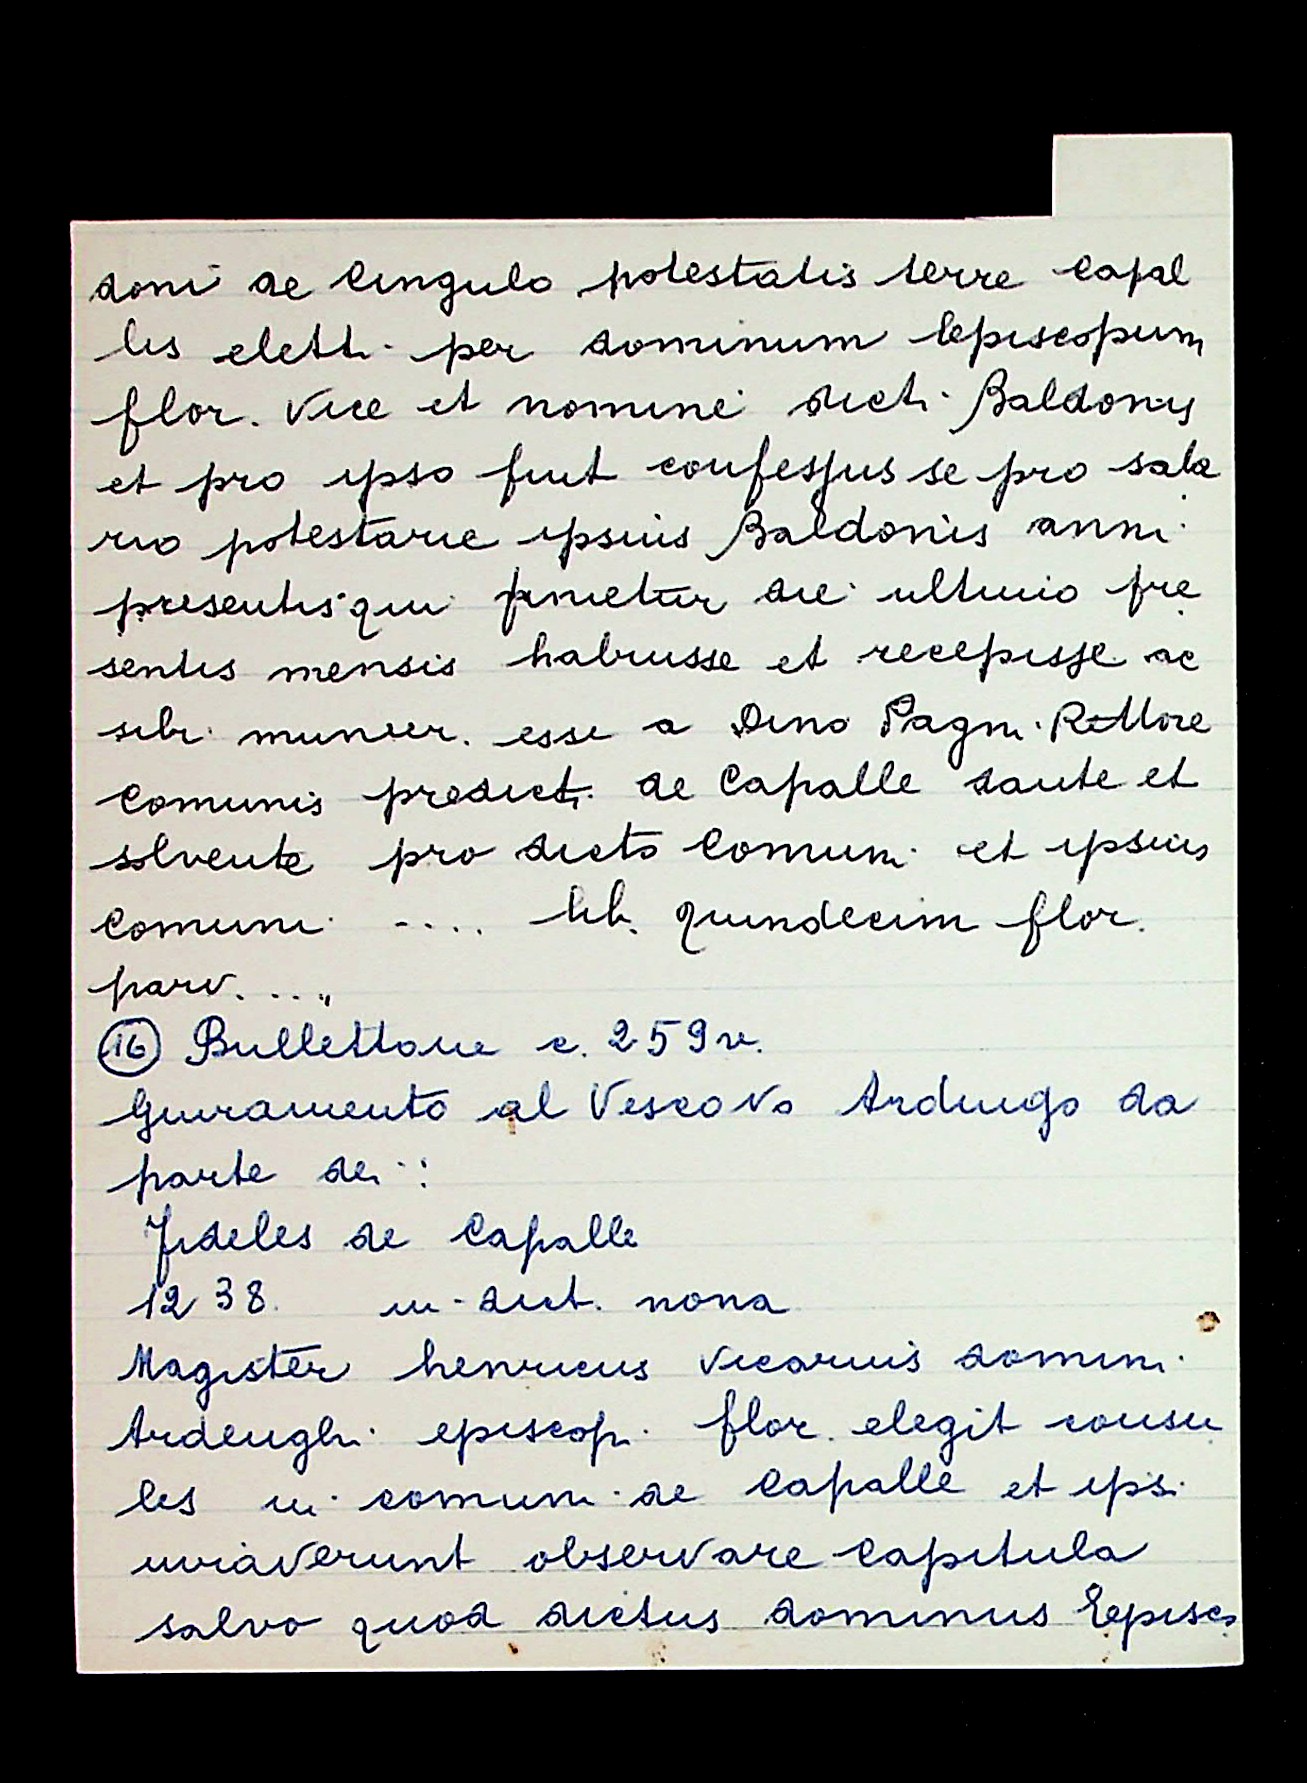 doni de Cingulo potestatis terre Capal
lis eletti per dominum Episcopum
flor. vice et nomine dicti Baldonis
et pro ipso fuit confessus se pro sala
rio potestarie ipsius Baldonis anni
presentis qui finietur die ultimo pre
sentis mensis habuisse et recepisse ac
sibi numer. esse a Dino Pagni Rettore
Comunis predicti de Capalle dante et
solvente pro dicto Comuni et ipsius
Comuni .... lib. quindecim flor.
parv. ....
(16) Bullettone c. 259 v.
Giuramento al Vescovo Ardingo da
parte dei:
Fideles de Capalle
1238. in dict. nona
Magister henricus vicarius domini
Ardenghi episcopi flor. elegit consu
les in comuni de Capalle et ipsi
iuraverunt observare capitula
salvo quod dictus dominus Episco